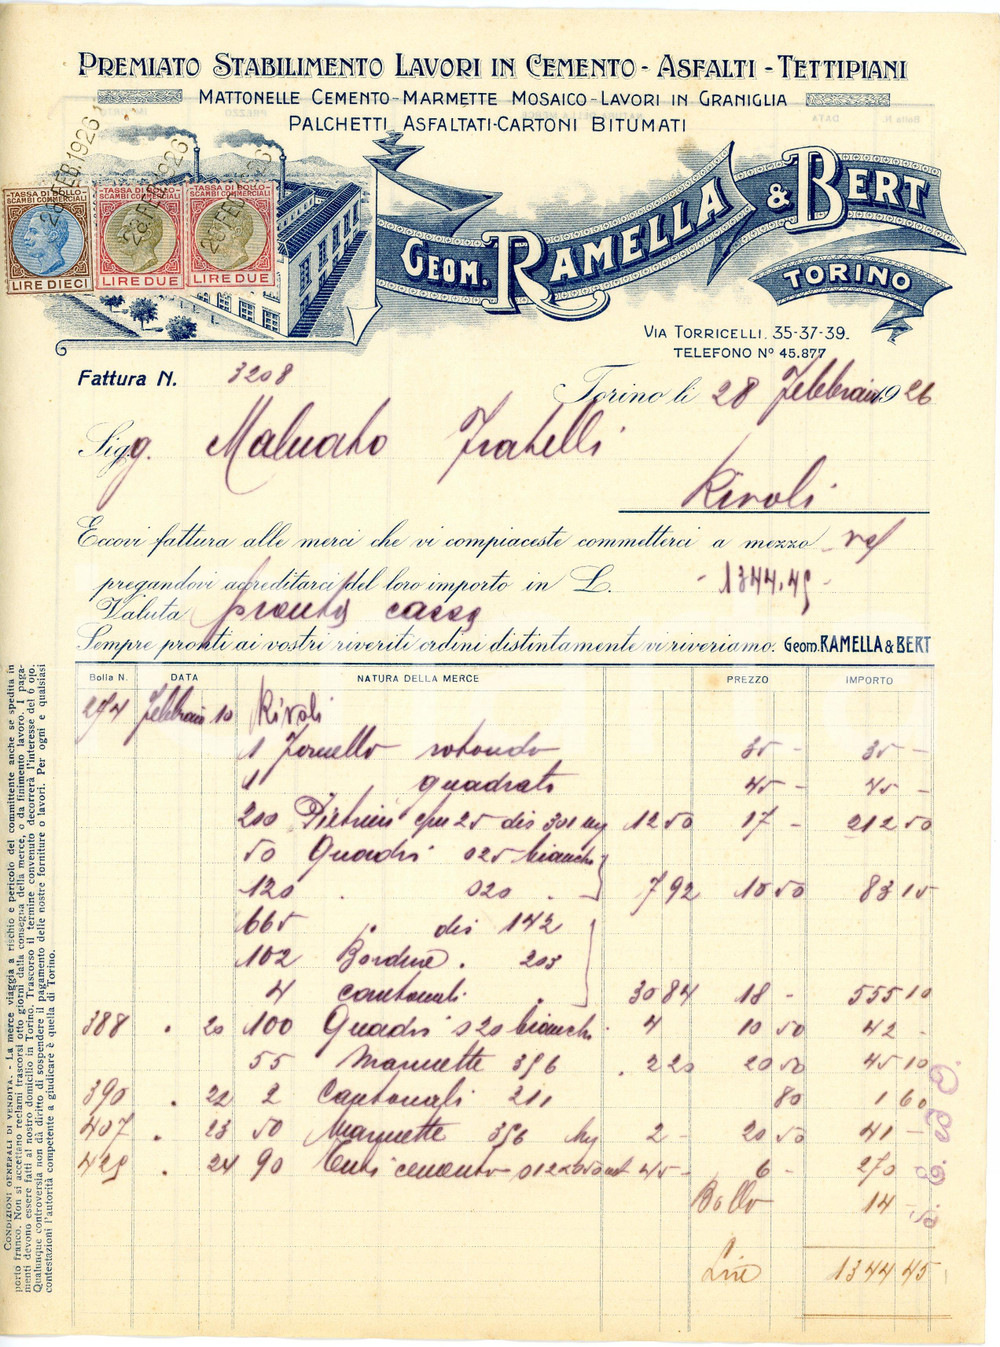 PREMIATO STABILIMENTO LAVORI IN CEMENTO - ASFALTI - TETTIPIANI
MATTONELLE CEMENTO-MARMETTE MOSAICO-LAVORI IN GRANIGLIA
PALCHETTI ASFALTATI-CARTONI BITUMATI
TASSA DI BOLLO SCAMBI COMMERCIALI LIRE DIECI
TASSA DI BOLLO SCAMBI COMMERCIALI LIRE DUE
TASSA DI BOLLO SCAMBI COMMERCIALI LIRE DUE
28 FEB. 1926
GEOM. RAMELLA & BERT
TORINO
VIA TORRICELLI. 35-37-39.
TELEFONO N° 45.877
Fattura N. 3208
Torino li 28 Febbraio 1926
Sigg. Fratelli
Rivoli
Eccovi fattura alle merci che vi compiaceste commetterci a mezzo
pregandovi accreditarci del loro importo in L. -1344.45-
Valuta pronta cassa
Sempre pronti ai vostri riveriti ordini distintamente vi riveriamo. Geom. RAMELLA & BERT
Bolla N. DATA NATURA DELLA MERCE PREZZO IMPORTO
274 Febbraio 10 Rivoli
1 Fornello rotondo 35 - 35 -
1 " quadrato 45 - 45 -
200 Pietrini c/m 25 dis 301 Mq 12 50 17 - 212 50
50 Quadri 025 bianchi
120 . 020 . 7 92 10 50 83 15
665 " dis 142
102 Bordure . 203
4 cantonali . 30 84 18 - 555 10
388 . 20 100 Quadri 020 bianchi . 4 10 50 42 -
55 Marmette 356 . 2 20 20 50 45 10
390 . 22 2 Cantonali 211 80 1 60
407 . 23 50 Marmette 356 Mq 2 - 20 50 41 -
425 . 24 90 Tubi cemento 45 - 6 - 270 -
Bollo 14 -
Lire 1344 45
CONDIZIONI GENERALI DI VENDITA. - La merce viaggia a rischio e pericolo del committente anche se spedita in
porto franco. Non si accettano reclami trascorsi otto giorni dalla consegna della merce, o da finimento lavoro. I paga-
menti devono essere fatti al nostro domicilio in Torino. Trascorso il termine convenuto decorrerà l'interesse del 6 o/o.
Qualunque controversia non dà diritto di sospendere il pagamento delle nostre forniture o lavori. Per ogni e qualsiasi
contestazioni l'autorità competente a giudicare è quella di Torino.